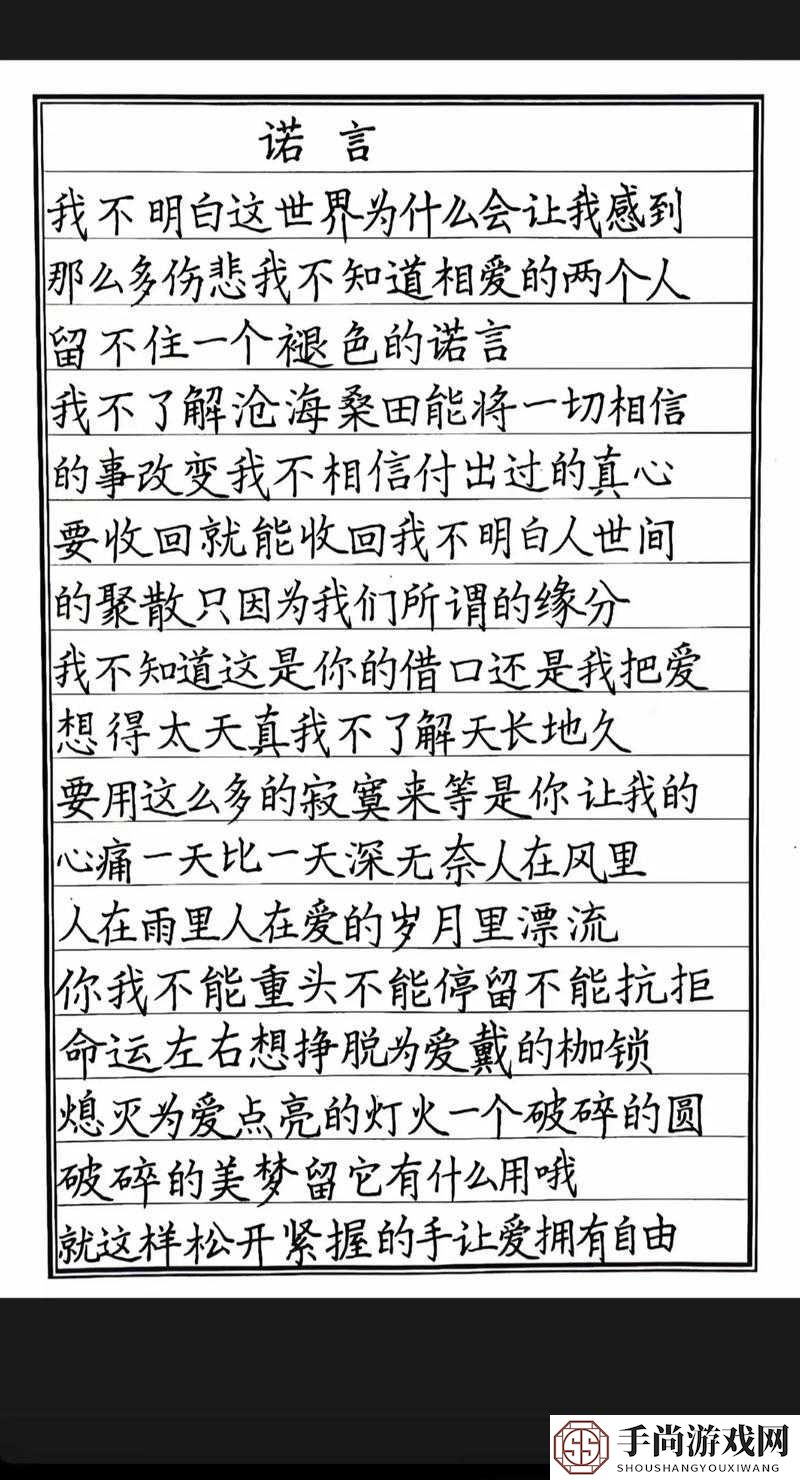 诺言
我不明白这世界为什么会让我感到
那么多伤悲我不知道相爱的两个人
留不住一个褪色的诺言
我不了解沧海桑田能将一切相信
的事改变我不相信付出过的真心
要收回就能收回我不明白人世间
的聚散只因为我们所谓的缘分
我不知道这是你的借口还是我把爱
想得太天真我不了解天长地久
要用这么多的寂寞来等是你让我的
心痛一天比一天深无奈人在风里
人在雨里人在爱的岁月里漂流
你我不能重头不能停留不能抗拒
命运左右想挣脱为爱戴的枷锁
熄灭为爱点亮的灯火一个破碎的圆
破碎的美梦留它有什么用哦
就这样松开紧握的手让爱拥有自由
手尚游戏网
SHOUSHANGYOUXIWANG